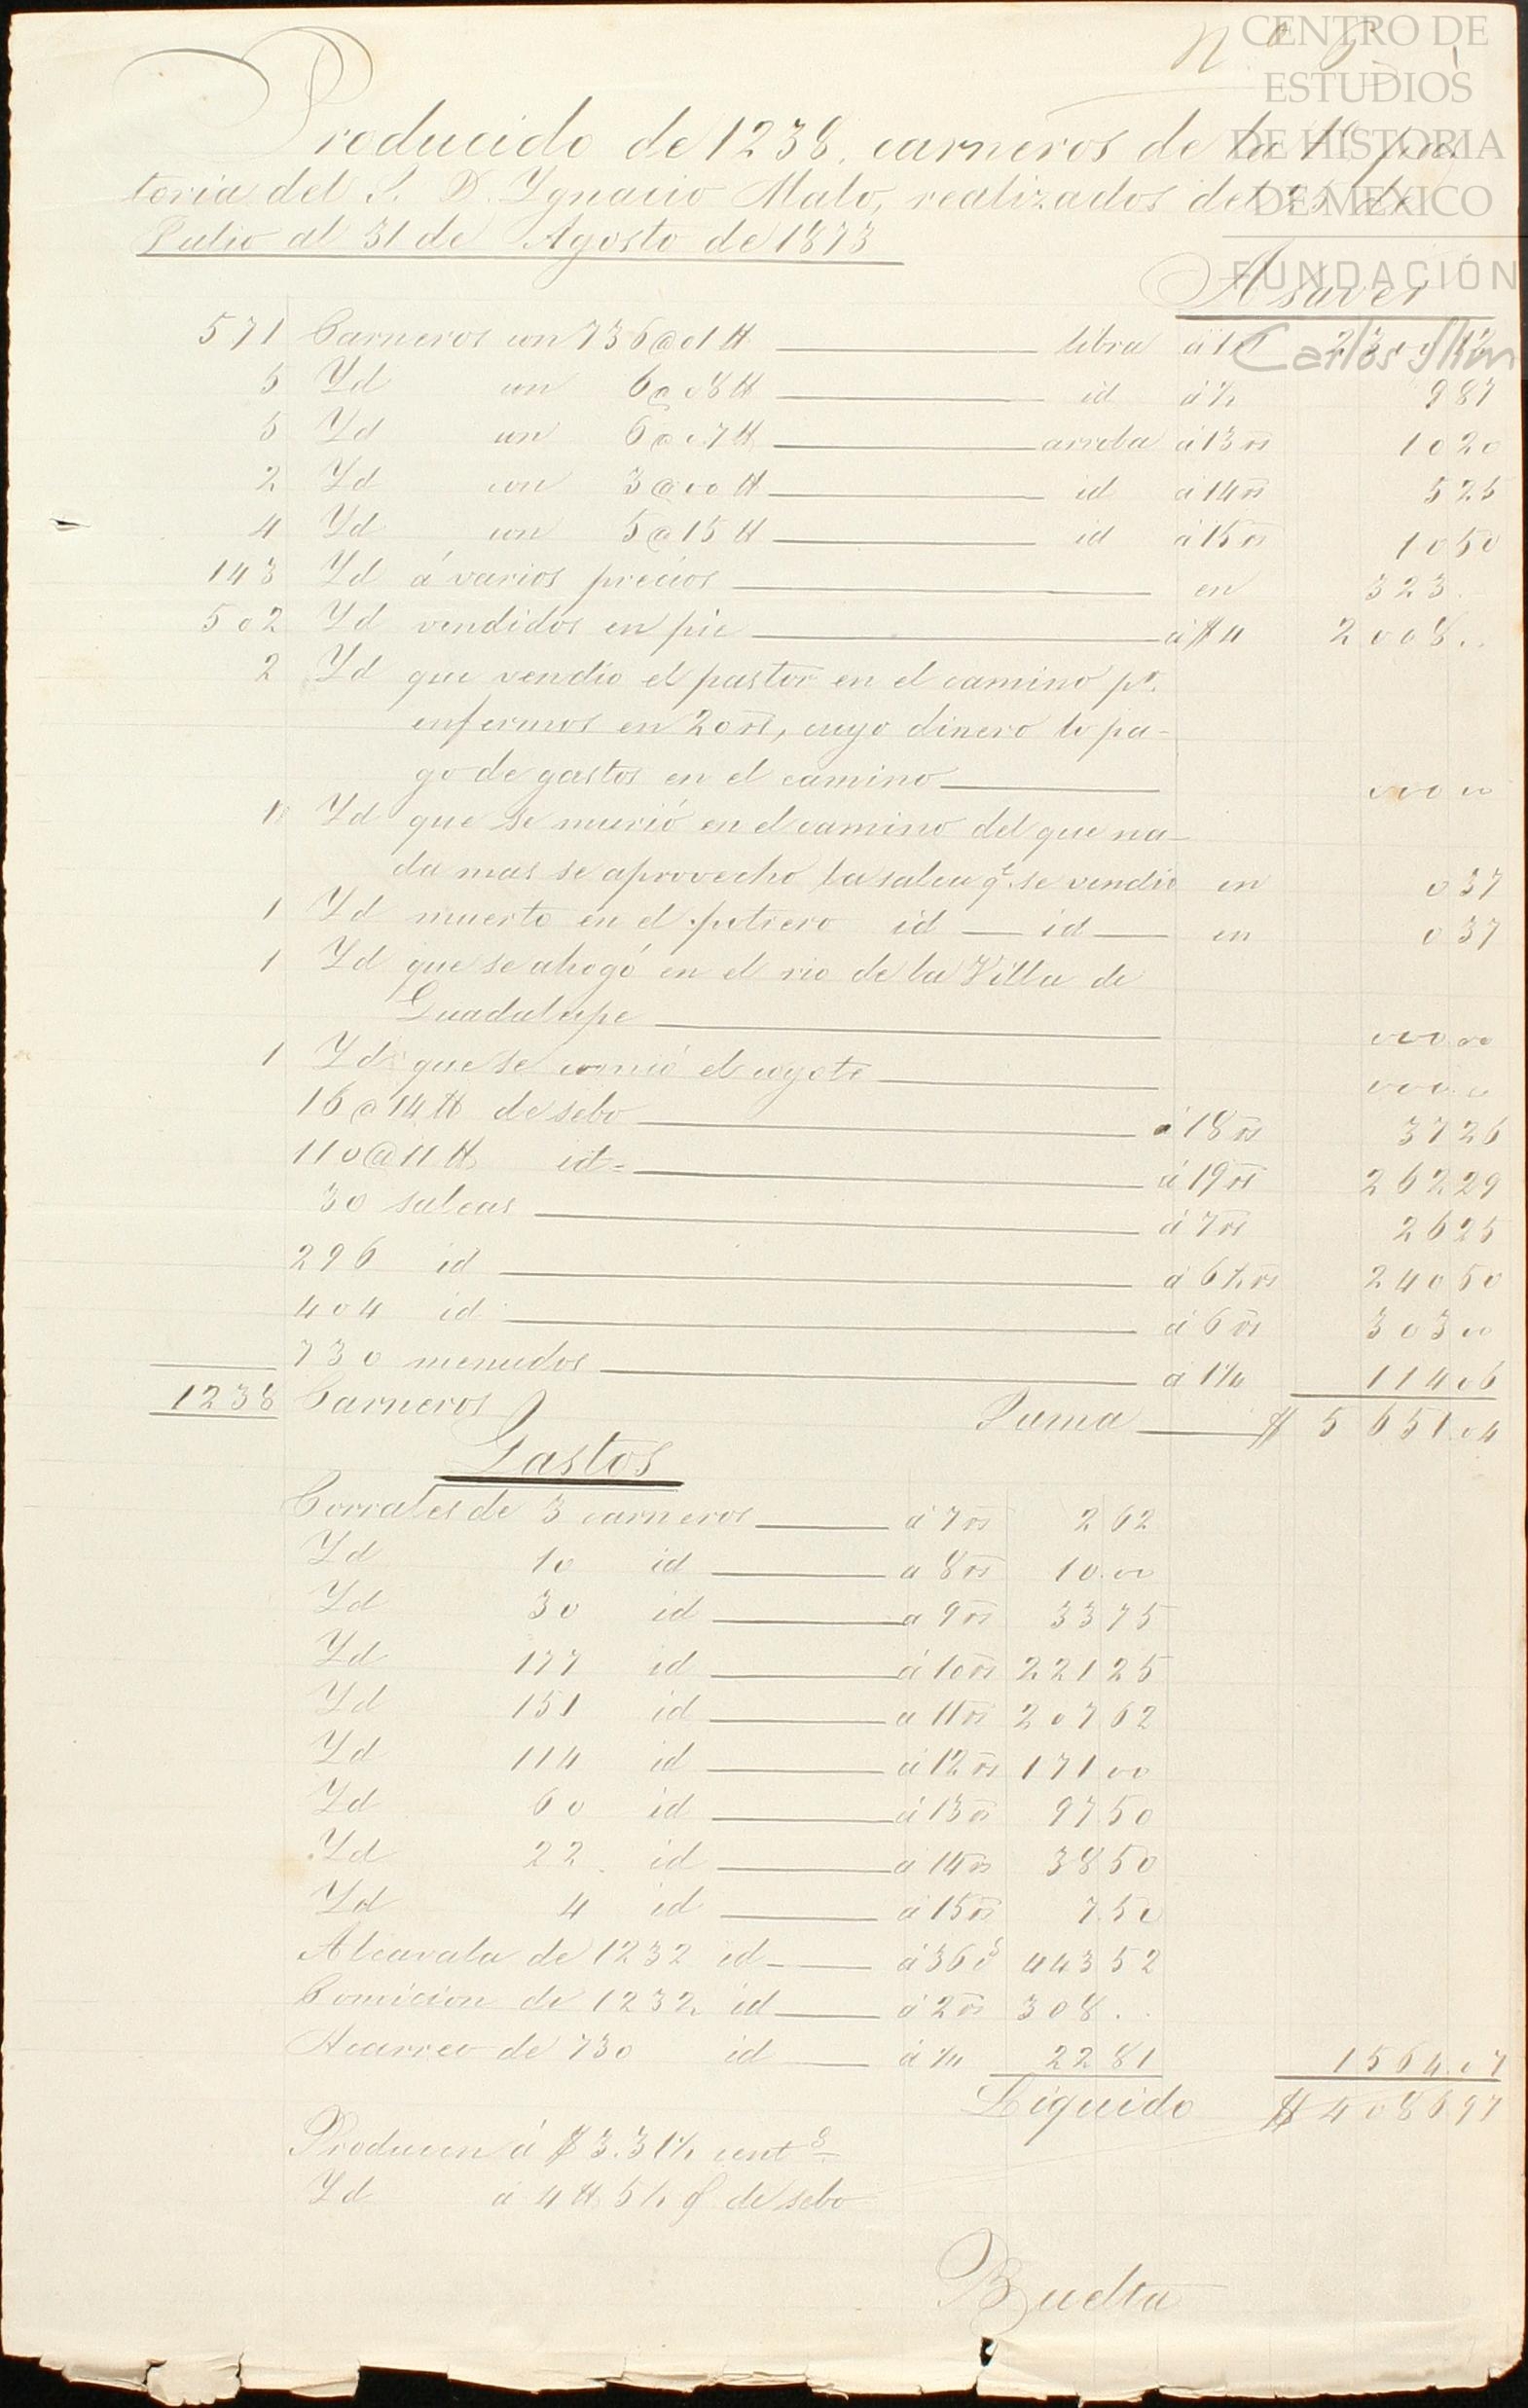 CENTRO DE
ESTUDIOS
DE HISTORIA
DE MEXICO
FUNDACIÓN
Carlos Slim
Producido de 1238. carneros de la 1ª pas
toria del S. D. Ygnacio Malo, realizados del de
Julio al 31 de Agosto de 1873
Asaver
571 Carneros con 736@01 ℔ libra á 1 2300 12
5 Yd con 6@08℔ id á ½ 9 87
5 Yd con 6@07℔ arroba á 13 rs 10 20
2 Yd con 3@00 ℔ id á 14 rs 5 25
4 Yd con 5@15 ℔ id á 15 rs 10 50
143 Yd á varios precios en 323 . .
502 Yd vendidos en pie á $4 2008 . .
2 Yd que vendio el pastor en el camino pr.
enfermos en 20 rs, cuyo dinero lo pa-
go de gastos en el camino 000 00
1 Yd que se murió en el camino del que na-
da mas se aprovecho la salea qe. se vendio en 0 37
1 Yd muerto en el potrero id — id en 0 37
1 Yd que se ahogó en el rio de la Villa de
Guadalupe 000 00
1 Yd que se comió el coyote 000 00
16@14 ℔ de sebo á 18 rs 37 26
110@11 ℔ id á 19 rs 262 29
30 saleas á 7 rs 26 25
296 id á 6½ rs 240 50
404 id á 6 rs 303 00
730 menudos á 1¼ 114 06
1238 Carneros Suma $ 5 651.04
Gastos
Corrales de 3 carneros á 7 rs 2 62
Yd 10 id a 8 rs 10.00
Yd 30 id a 9 rs 33 75
Yd 177 id á 10 rs 221 25
Yd 151 id a 11 rs 207 62
Yd 114 id á 12 rs 171 00
Yd 60 id á 13 rs 97 50
Yd 22. id a 14 rs 38 50
Yd 4 id á 15 rs 7.50
Alcavala de 1232 id á 36 cs 443 52
Comicion de 1232 id á 2 rs 308 . .
Acarreo de 730 id á ¼ 22 81 1564.07
Liquido $ 4086 97
Producen á $3.31½ cents.
Yd a 4 ℔ 5½ de sebo
Buelta